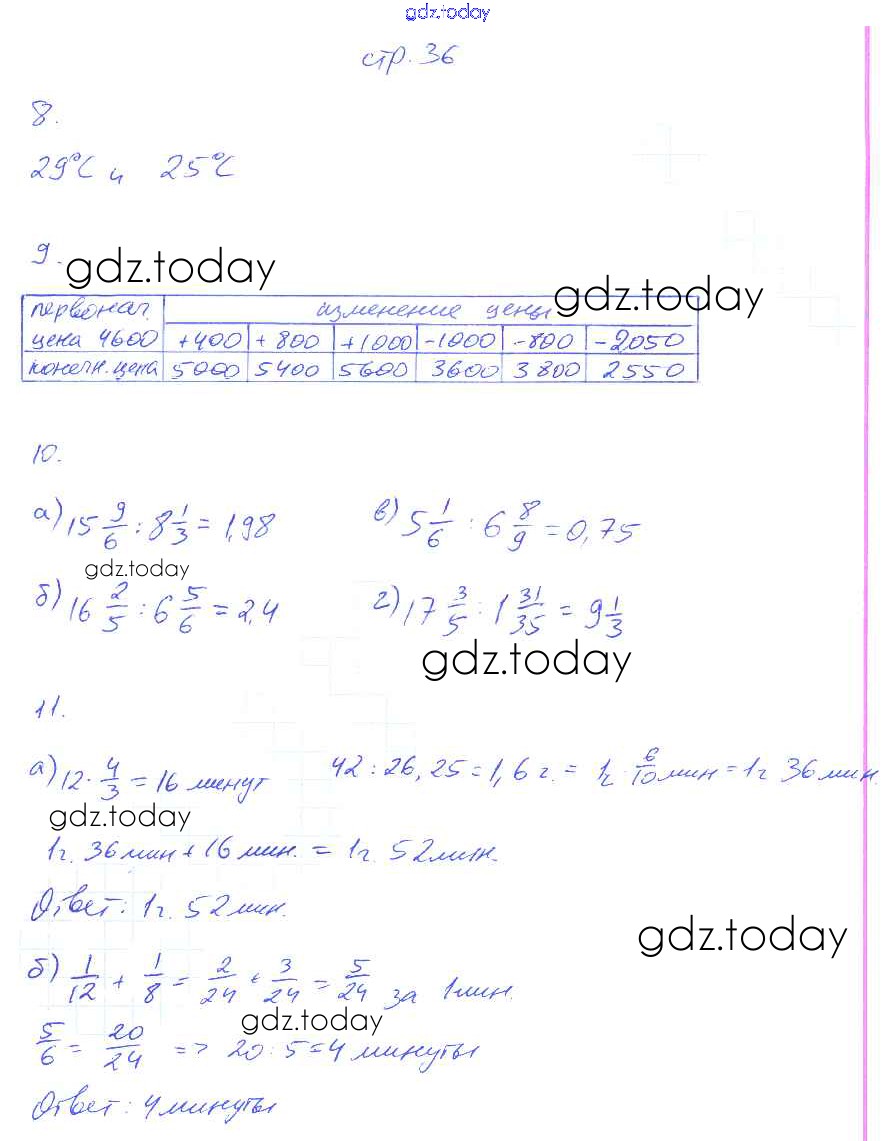 gdz.today
стр. 36
8.
29°C и 25°C
9.
gdz.today
gdz.today
первонач. изменение цены
цена 4600 +400 +800 +1000 -1000 -800 -2050
конечн. цена 5000 5400 5600 3600 3800 2550
10.
а) 15 9/6 : 8 1/3 = 1,98 в) 5 1/6 : 6 8/9 = 0,75
gdz.today
б) 16 2/5 : 6 5/6 = 2,4 г) 17 3/5 : 1 31/35 = 9 1/3
gdz.today
11.
а) 12 · 4/3 = 16 минут 42 : 26,25 = 1,6 г. = 1г 6/10 мин = 1г 36 мин.
gdz.today
1г. 36 мин + 16 мин. = 1г. 52 мин.
Ответ: 1г. 52 мин.
gdz.today
б) 1/12 + 1/8 = 2/24 + 3/24 = 5/24 за 1 мин.
gdz.today
5/6 = 20/24 => 20 : 5 = 4 минуты
Ответ: 4 минуты